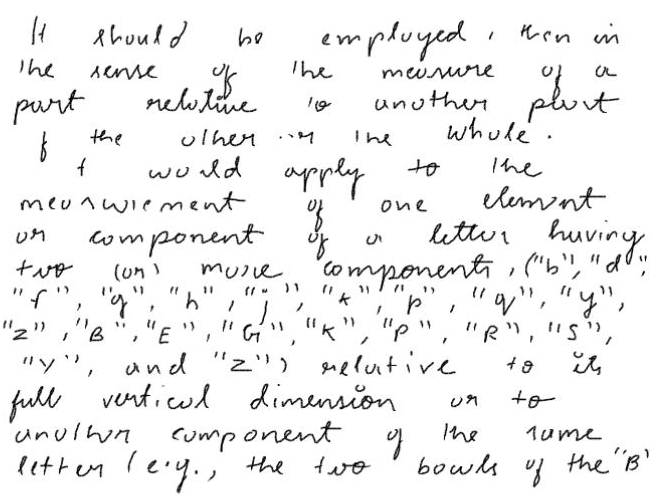 It should be employed, then in
the sense of the measure of a
part relative to another part
of the other or the whole.
t would apply to the
measurement of one element
or component of a letter having
two (or) more components, ("b", "d",
"f", "g", "h", "j", "k", "p", "q", "y",
"z", "B", "E", "G", "K", "P", "R", "S",
"Y", and "Z") relative to its
full vertical dimension or to
another component of the same
letter (e.g., the two bowls of the "B"